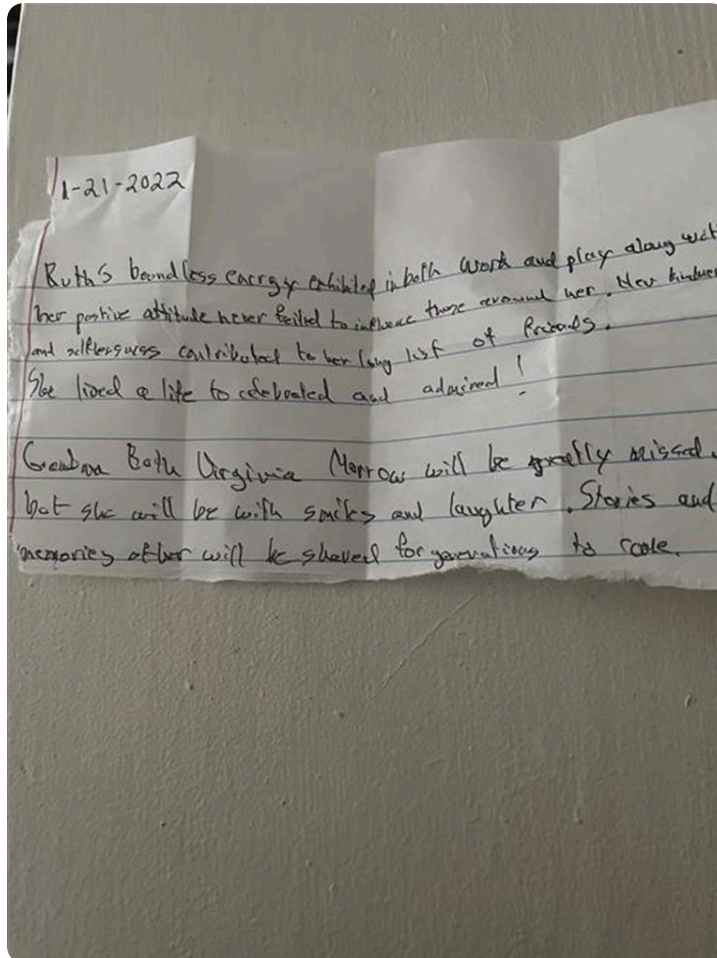 1-21-2022
Ruth's boundless energy exhibited in both work and play along with
her postive attitude never failed to influence those around her. Her kindness
and selflessness contributed to her long list of friends.
She lived a life to celebrated and admired!
Grandma Ruth Virginia Morrow will be greatly missed,
but she will be with smiles and laughter. Stories and
memories of her will be shared for generations to come.